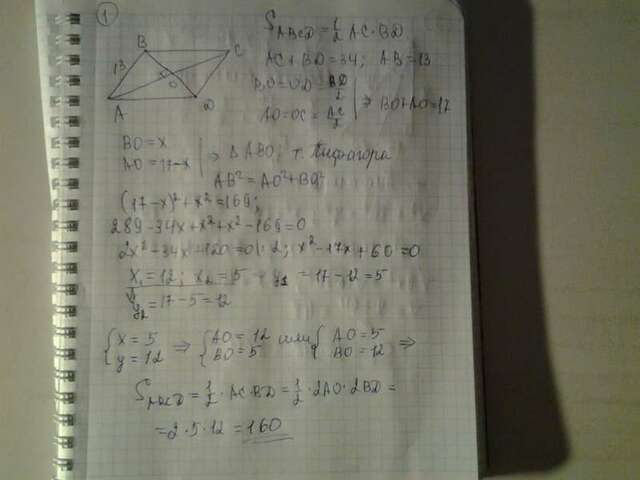 1
S ABCD = 1/2 AC · BD
AC + BD = 34; AB = 13
BO = OD = BD/2
AO = OC = AC/2 | ⇒ BO + AO = 17
B C
13
O
A D
BO = x
AO = 17 - x | ⇒ Δ ABO, т. Пифагора
AB² = AO² + BO²
(17 - x)² + x² = 169;
289 - 34x + x² + x² - 169 = 0
2x² - 34x + 120 = 0 | : 2; x² - 17x + 60 = 0
x₁ = 12; x₂ = 5 y₁ = 17 - 12 = 5
y₂ = 17 - 5 = 12
{ x = 5 ⇒ { AO = 12 или { AO = 5 ⇒
{ y = 12 { BO = 5 { BO = 12
S ABCD = 1/2 · AC · BD = 1/2 · 2AO · 2BD =
= 2 · 5 · 12 = 160